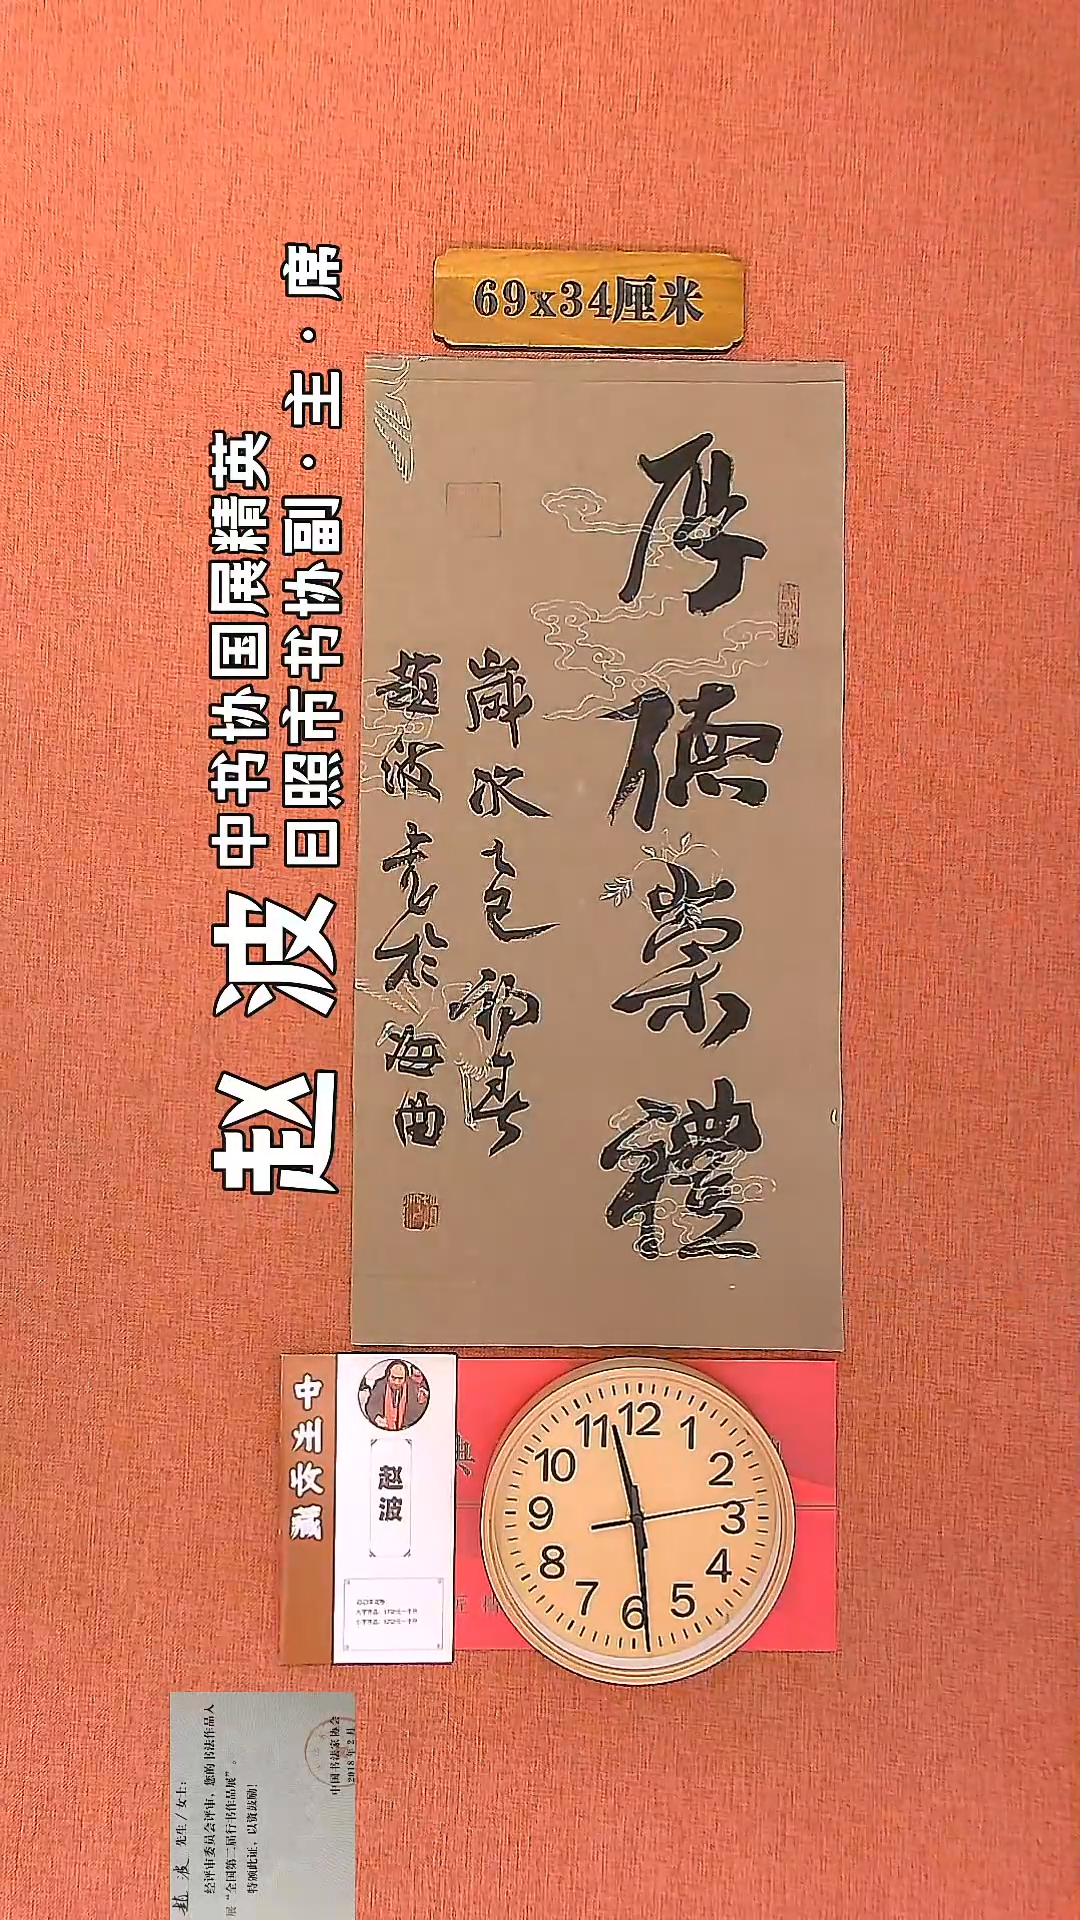 69x34厘米
厚德崇禮
歲次乙巳初春
趙波書於海曲
赵波
中书协国展精英
日照市书协副·主·席
中
赵波
11 12 1
10 2
9 3
8 4
7 6 5
趙波 先生/女士：
经评审委员会评审，您的书法作品入
展“全国第二届行书作品展”。
特颁此证，以资鼓励！
中国书法家协会
2018年2月